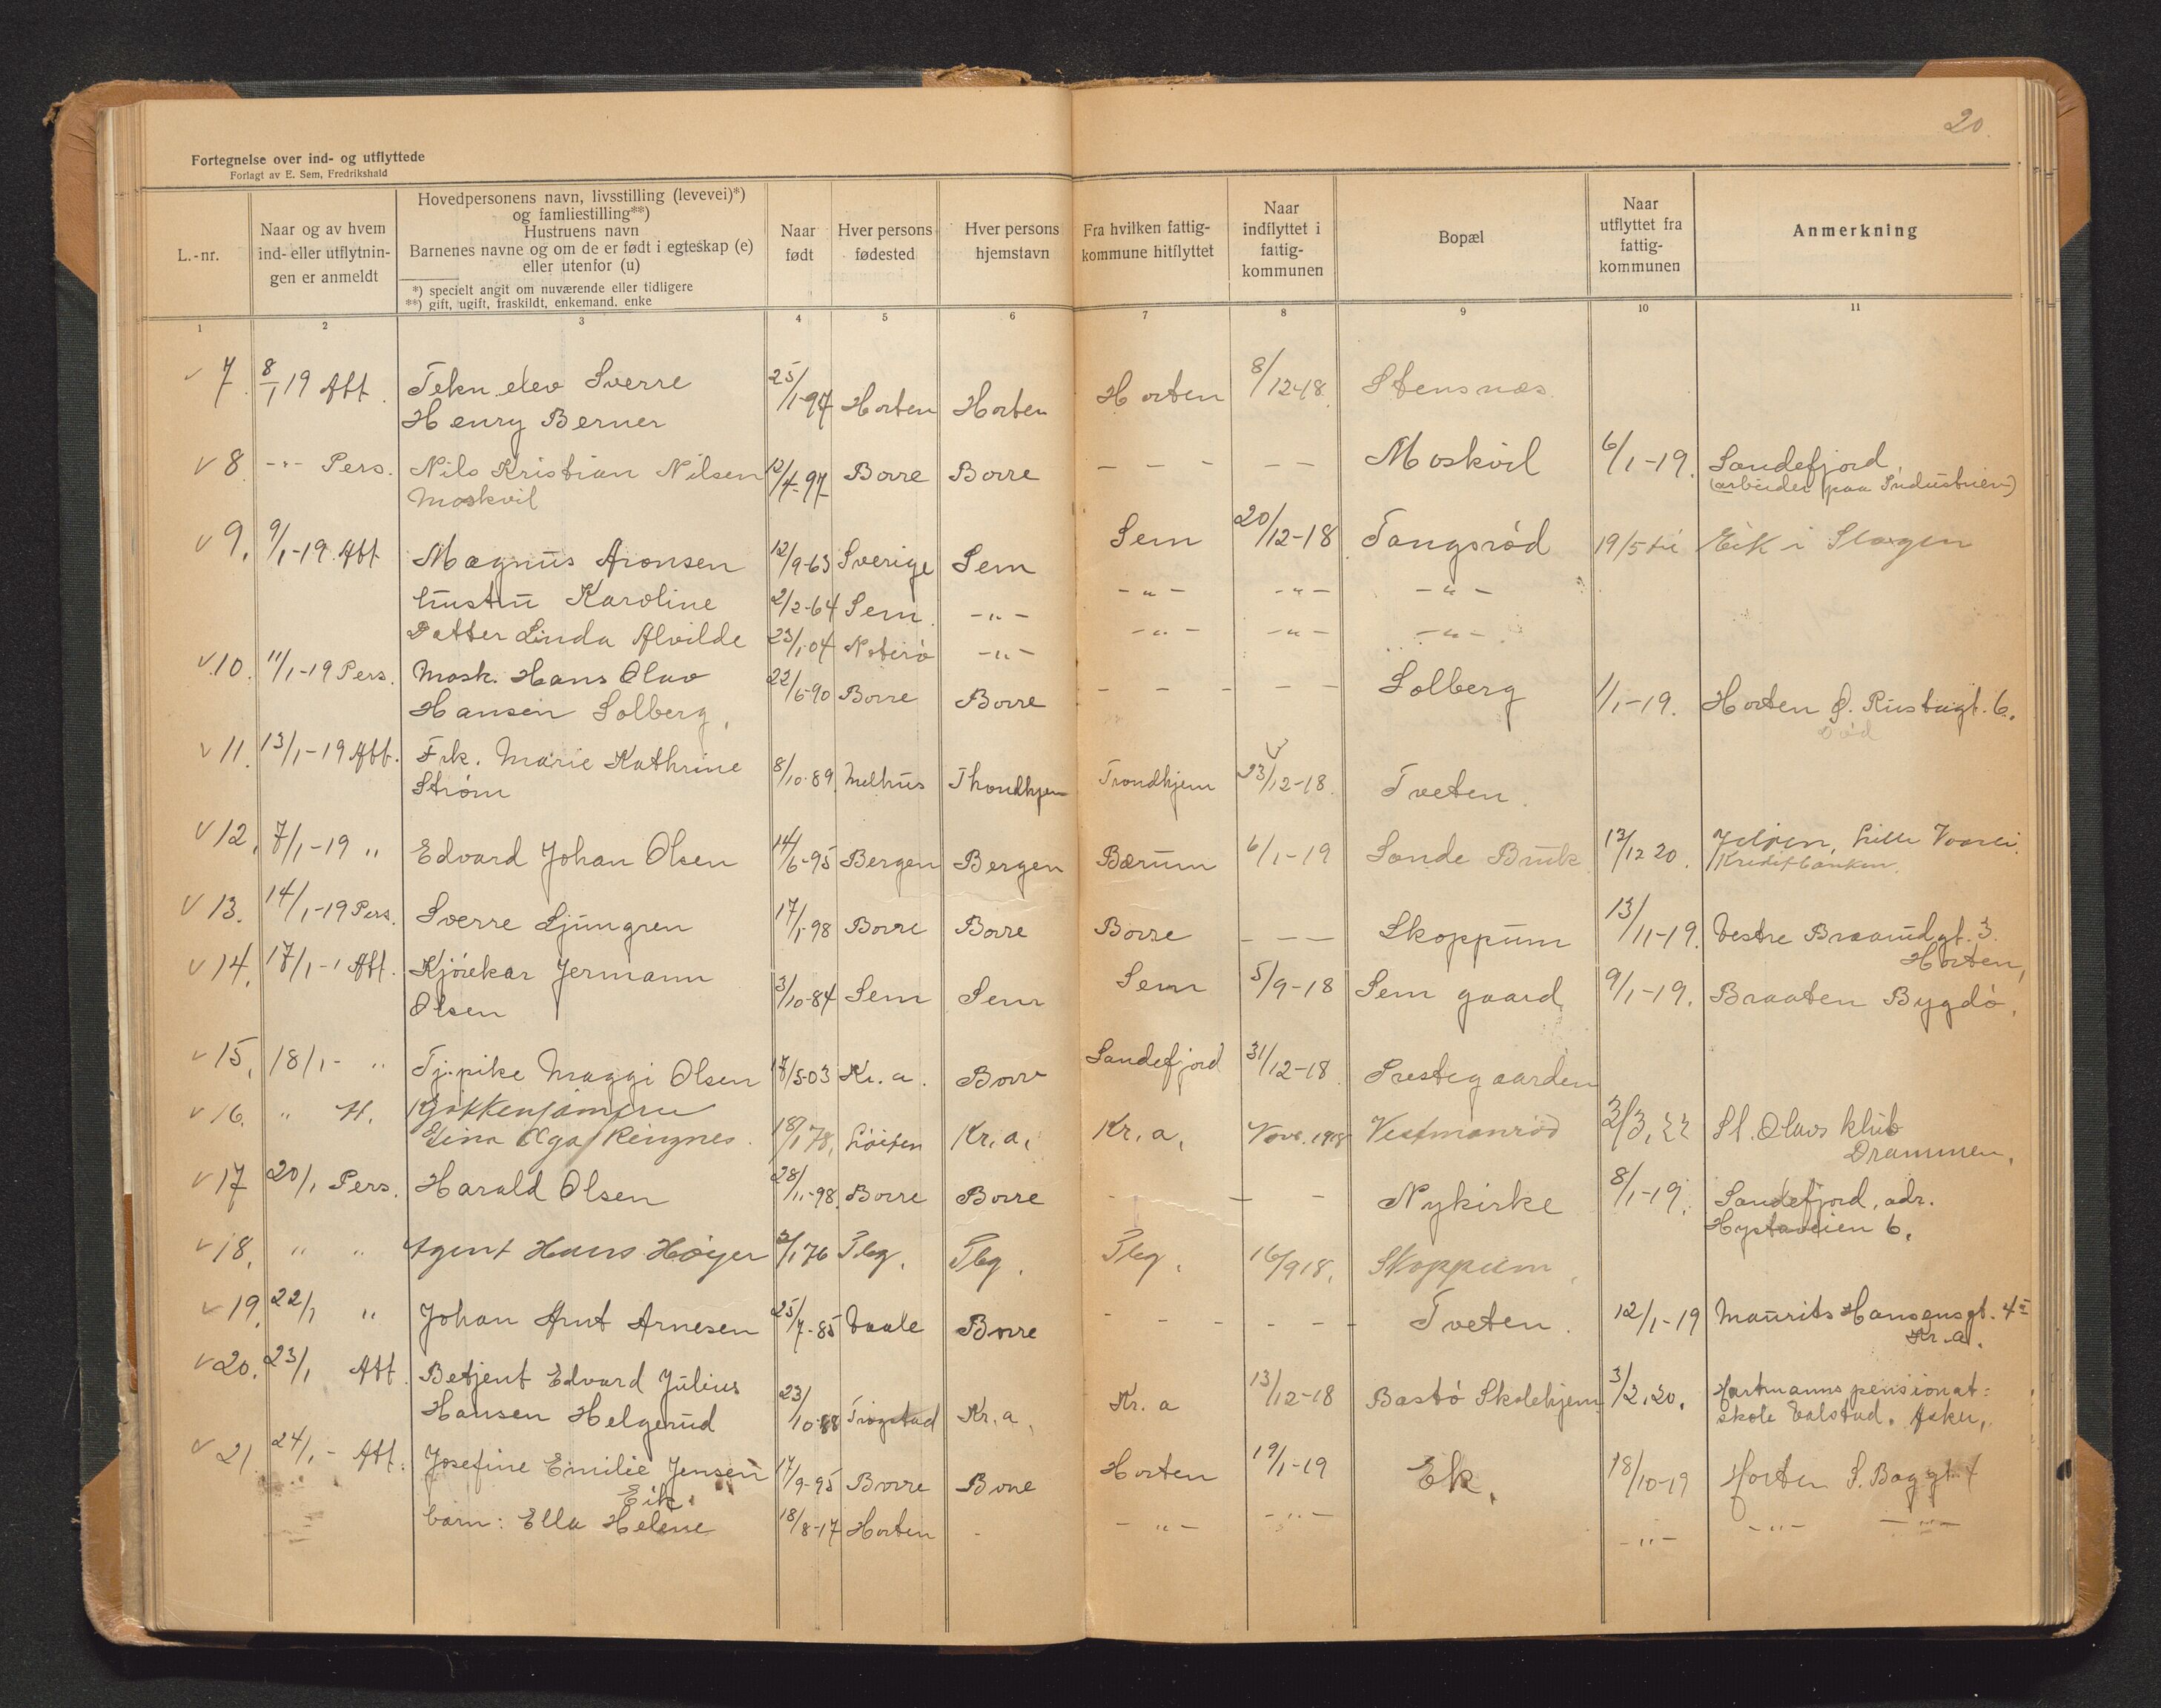 20.
Fortegnelse over ind- og utflyttede
Forlagt av E. Sem, Fredrikshald
L.-nr.
Naar og av hvem
ind- eller utflytnin-
gen er anmeldt
Hovedpersonens navn, livsstilling (levevei)*)
og famliestilling**)
Hustruens navn
Barnenes navne og om de er født i egteskap (e)
eller utenfor (u)
*) specielt angit om nuværende eller tidligere
**) gift, ugift, fraskildt, enkemand, enke
Naar
født
Hver persons
fødested
Hver persons
hjemstavn
Fra hvilken fattig-
kommune hitflyttet
Naar
indflyttet i
fattig-
kommunen
Bopæl
Naar
utflyttet fra
fattig-
kommunen
Anmerkning
1 2 3 4 5 6 7 8 9 10 11
7. 8/1 19 Att. Tekn. elev Sverre 25/1-97 Horten Horten Horten 8/12-18. Stensnæs
Henry Berner
8. -"- Pers. Nils Kristian Nilsen 12/4-97 Borre Borre - - - - - Moskvil 6/1-19. Sandefjord
Moskvil (arbeider paa Industrien)
9. 9/1-19. Att Magnus Aronsen 12/9-63 Sverige Sem Sem 20/12-18 Tangsrød 19/5 Eik i Slagen
hustru Karoline 2/2-64 Sem. -"- -"- -"- -"-
Datter Linda Alvilde 23/1-04 Nøterø -"- -"- -"- -"-
10. 11/1-19 Pers. Mask. Hans Olav 22/6-90 Borre Borre - - - - - Solberg 1/1-19. Horten Ø. Rustugt. 6.
Hansen Solberg,
11. 13/1-19 Att. Frk. Marie Kathrine 8/10-89. Melhus Thondhjem Trondhjem 23/12-18. Tveten.
Strøm
12. 7/1-19 " Edvard Johan Olsen 14/6-95 Bergen Bergen Bærum 6/1-19 Sande Bruk 13/12 20. Jeløen, Lille
Kreditbanken.
13. 14/1-19 Pers. Sverre Ljungren 17/1-98 Borre Borre Borre - - - Skoppum 13/11-19. Vestre Braarudgt. 3.
Horten,
14. 17/1-1 Att. Kjørekar Jermann 3/10-84 Sem Sem Sem 5/9-18 Sem gaard 9/1-19. Braaten Bygdø,
Olsen
15. 18/1- " Tj.pike Maggi Olsen 17/5-03 Kr. a. Borre Sandefjord 31/12-18. Prestegaarden
16. " H. Kjøkkenjomfru
Olga Ringnes. 18/1 78. Løiten Kr. a, Kr. a, Nov. 1918 Vestmanrød 2/3. 22 St. Olavs klub
Drammen,
17 20/1 Pers. Harald Olsen 28/11-98. Borre Borre - - - Nykirke 8/1-19. Sandefjord, adr.
Hystadveien 6.
18. " " Agent Hans Høyer 2/1 76 Tbg. Tbg. Tbg. 16/9 18. Skoppum
19. 22/1 " Johan Arnt Arnesen 25/7-85 Vaale Borre - - - - - - Tveten. 12/1-19 Maurits Hansensgt. 4
Kr. a.
20. 23/1 Att. Betjent Edvard Julius 23/10-88 Trøgstad Kr. a, Kr. a 13/12-18 Bastø Skolehjem 3/2.20. Hartmanns pensionat-
Hansen Helgerud skole Valstad. Asker.
21. 24/1- Att. Josefine Emilie Jensen 17/9-95 Borre Borre Horten 19/1-19 Ek. 18/10-19 Horten S.
Eik.
barn: Ella Helene 18/8-17 Horten - -"- -"- -"- -"- -"-